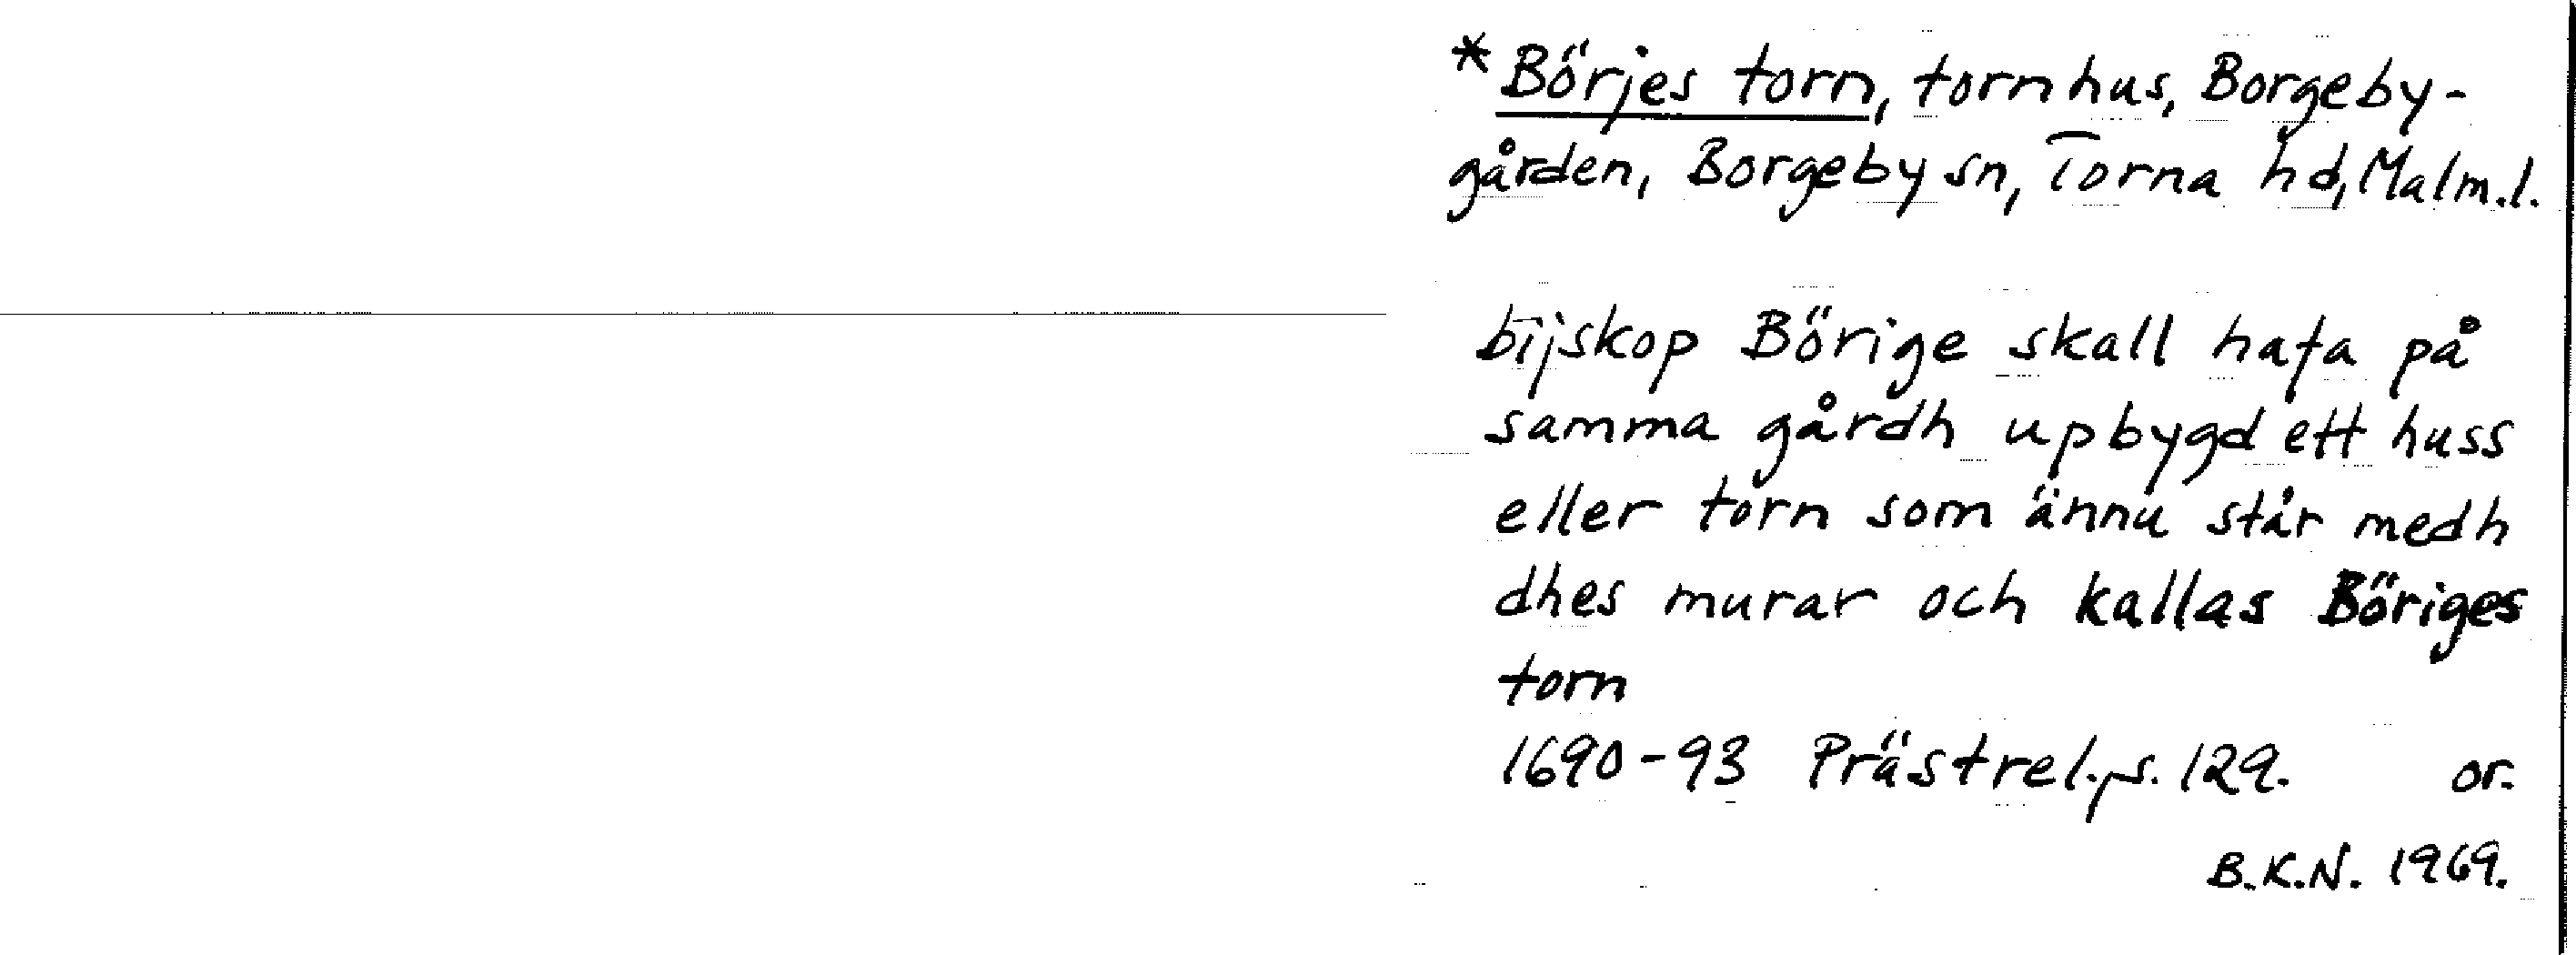 * Börjes torn, tornhus, Borgeby-
gården, Borgeby sn, Torna hd, Malm.l.
bijskop Börige skall hafa på
samma gårdh upbygd ett huss
eller torn som ännu står medh
dhes murar och kallas Böriges
torn
1690-93 Prästrel. s. 129. or.
B.K.N. 1969.